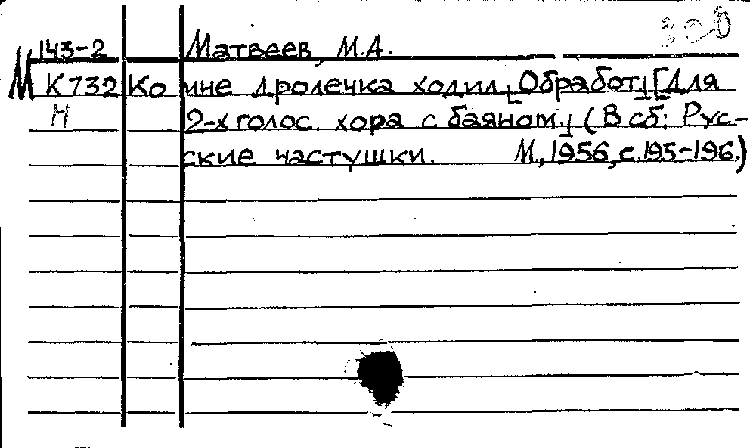 143-2 Матвеев, М.А.
М К732 Ко мне дролечка ходил. [Обработ.] [Для
Н 2-х голос. хора с баяном.] (В сб: Рус-
ские частушки. М., 1956, с. 195-196.)